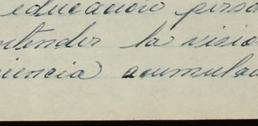 educación perso
ntender la visió
iencia acumulad